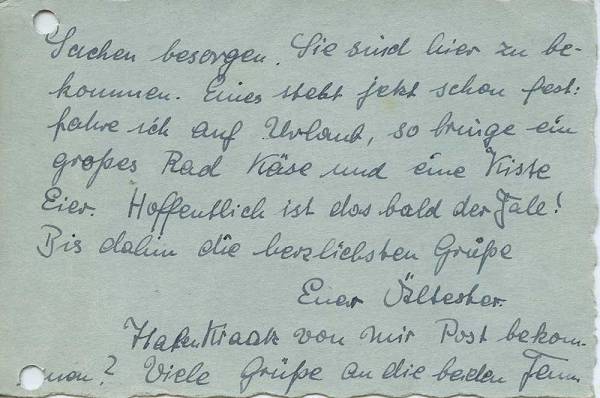 Sachen besorgen. Sie sind hier zu be-
kommen. Eines steht jetzt schon fest:
fahre ich auf Urlaub, so bringe ein
großes Rad Käse und eine Kiste
Eier. Hoffentlich ist das bald der Fall!
Bis dahin die herzlichsten Grüße
Euer Ältester.
von mir Post bekom-
men? Viele Grüße an die beiden